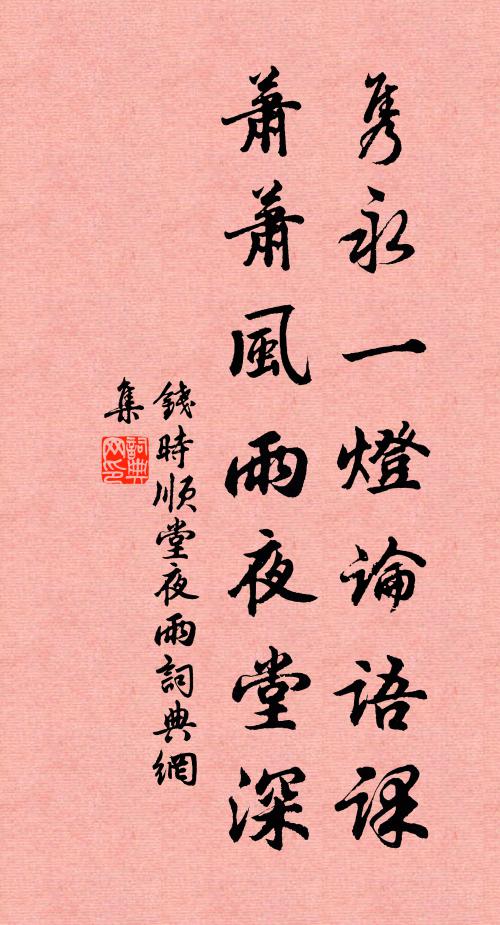 隽永一燈論語課
蕭蕭風雨夜堂深
錢時順堂夜雨詞典網
集
詞典
网印